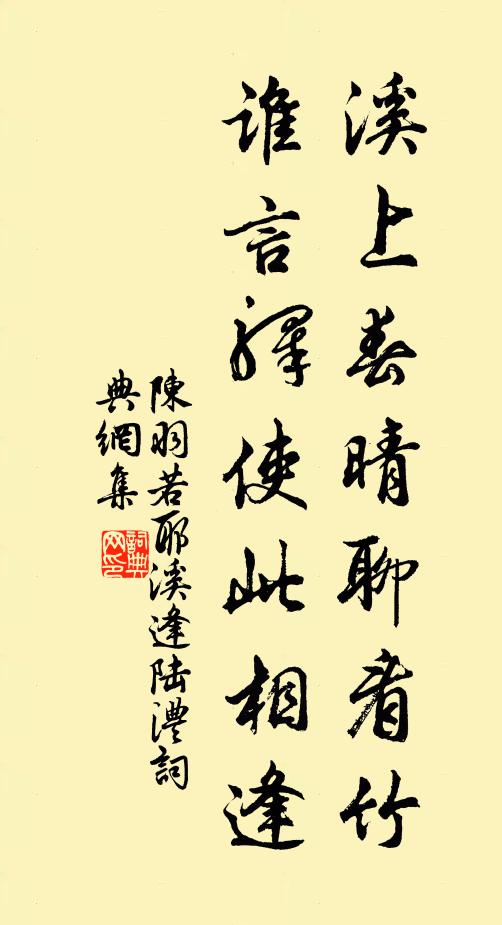 溪上春晴聊看竹
誰言驛使此相逢
陳羽若耶溪逢陸澧詞
典網集
詞典
网印